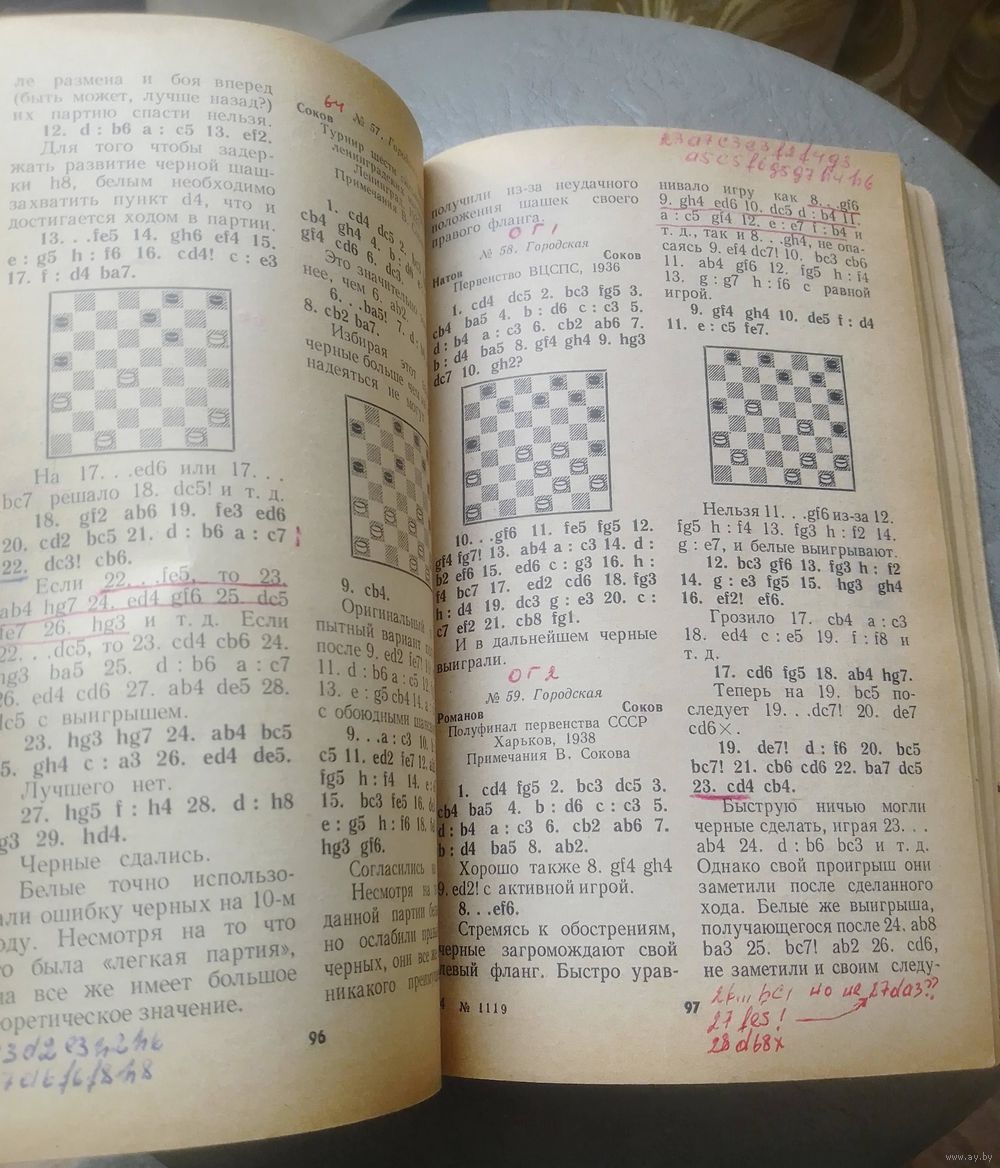 ле размена и боя вперед
(быть может, лучше назад?)
их партию спасти нельзя.
12. d : b6 a : c5 13. ef2.
Для того чтобы задер-
жать развитие черной шаш-
ки h8, белым необходимо
захватить пункт d4, что и
достигается ходом в партии.
13. . .fe5 14. gh6 ef4 15.
e : g5 h : f6 16. cd4! c : e3
17. f : d4 ba7.
На 17. . .ed6 или 17. . .
bc7 решало 18. dc5! и т. д.
18. gf2 ab6 19. fe3 ed6
20. cd2 bc5 21. d : b6 a : c7
22. dc3! cb6.
Если 22. . .fe5, то 23.
ab4 hg7 24. ed4 gf6 25. dc5
fe7 26. hg3 и т. д. Если
22. . .dc5, то 23. cd4 cb6 24.
hg3 ba5 25. d : b6 a : c7
26. ed4 cd6 27. ab4 de5 28.
dc5 с выигрышем.
23. hg3 hg7 24. ab4 bc5
5. gh4 c : a3 26. ed4 de5.
Лучшего нет.
27. hg5 f : h4 28. d : h8
g3 29. hd4.
Черные сдались.
Белые точно использо-
али ошибку черных на 10-м
оду. Несмотря на то что
то была «легкая партия»,
на все же имеет большое
оретическое значение.
96
64
№ 57. Городс
Соков
Турнир шести
ленинградских
Ленинград
Примечания В.
1. cd4 dc5 2.
cb4 gh4 4. b :
gf4 cd6 6. dc3
Это значительно
нее, чем 6. ab2
6. . .ba5! 7. d :
8. cb2 ba7.
Избирая этот
черные больше чем
надеяться не могут
9. cb4.
Оригинальный
пытный вариант
после 9. ed2 fe7!
11. d : b6 a : c5 12.
13. e : g5 cb4 14.
с обоюдными шансами
9. . .a : c3 10.
c5 11. ed2 fe7 12.
fg5 h : f4 14. e :
15. bc3 fe5 16.
e : g5 h : f6 18.
hg3 gf6.
Согласились на
Несмотря на
данной партии
но ослабили
черных, они все же
никакого
получили из-за неудачного
положения шашек своего
правого фланга.
ОГ1
№ 58. Городская
Натов Соков
Первенство ВЦСПС, 1936
1. cd4 dc5 2. bc3 fg5 3.
cb4 ba5 4. b : d6 c : c3 5.
d : b4 a : c3 6. cb2 ab6 7.
b : d4 ba5 8. gf4 gh4 9. hg3
dc7 10. gh2?
10. . .gf6 11. fe5 fg5 12.
gf4 fg7! 13. ab4 a : c3 14. d :
b2 ef6 15. ed6 c : g3 16. h :
f4 bc7 17. ed2 cd6 18. fg3
h : d4 19. dc3 g : e3 20. c :
c7 ef2 21. cb8 fg1.
И в дальнейшем черные
выиграли.
ОГ2
№ 59. Городская
Романов Соков
Полуфинал первенства СССР
Харьков, 1938
Примечания В. Сокова
1. cd4 fg5 2. bc3 dc5 3.
cb4 ba5 4. b : d6 c : c3 5.
d : b4 a : c3 6. cb2 ab6 7.
b : d4 ba5 8. ab2.
Хорошо также 8. gf4 gh4
9. ed2! с активной игрой.
8. . .ef6.
Стремясь к обострениям,
черные загромождают свой
левый фланг. Быстро урав-
4 № 1119
нивало игру как 8. . .gf6
9. gh4 ed6 10. dc5 d : b4 11.
a : c5 gf4 12. e : e7 f : b4 и
т. д., так и 8. . .gh4, не опа-
саясь 9. ef4 dc7! 10. bc3 cb6
11. ab4 gf6 12. fg5 h : f4
13. g : g7 h : f6 с равной
игрой.
9. gf4 gh4 10. de5 f : d4
11. e : c5 fe7.
Нельзя 11. . .gf6 из-за 12.
fg5 h : f4 13. fg3 h : f2 14.
g : e7, и белые выигрывают.
12. bc3 gf6 13. fg3 h : f2
14. g : e3 fg5 15. hg3 gh4
16. ef2! ef6.
Грозило 17. cb4 a : c3
18. ed4 c : e5 19. f : f8 и
т. д.
17. cd6 fg5 18. ab4 hg7.
Теперь на 19. bc5 по-
следует 19. . .dc7! 20. de7
cd6×.
19. de7! d : f6 20. bc5
bc7! 21. cb6 cd6 22. ba7 dc5
23. cd4 cb4.
Быструю ничью могли
черные сделать, играя 23. . .
ab4 24. d : b6 bc3 и т. д.
Однако свой проигрыш они
заметили после сделанного
хода. Белые же выигрыша,
получающегося после 24. ab8
ba3 25. bc7! ab2 26. cd6,
не заметили и своим следу-
97
27 fe5!
www.ay.by